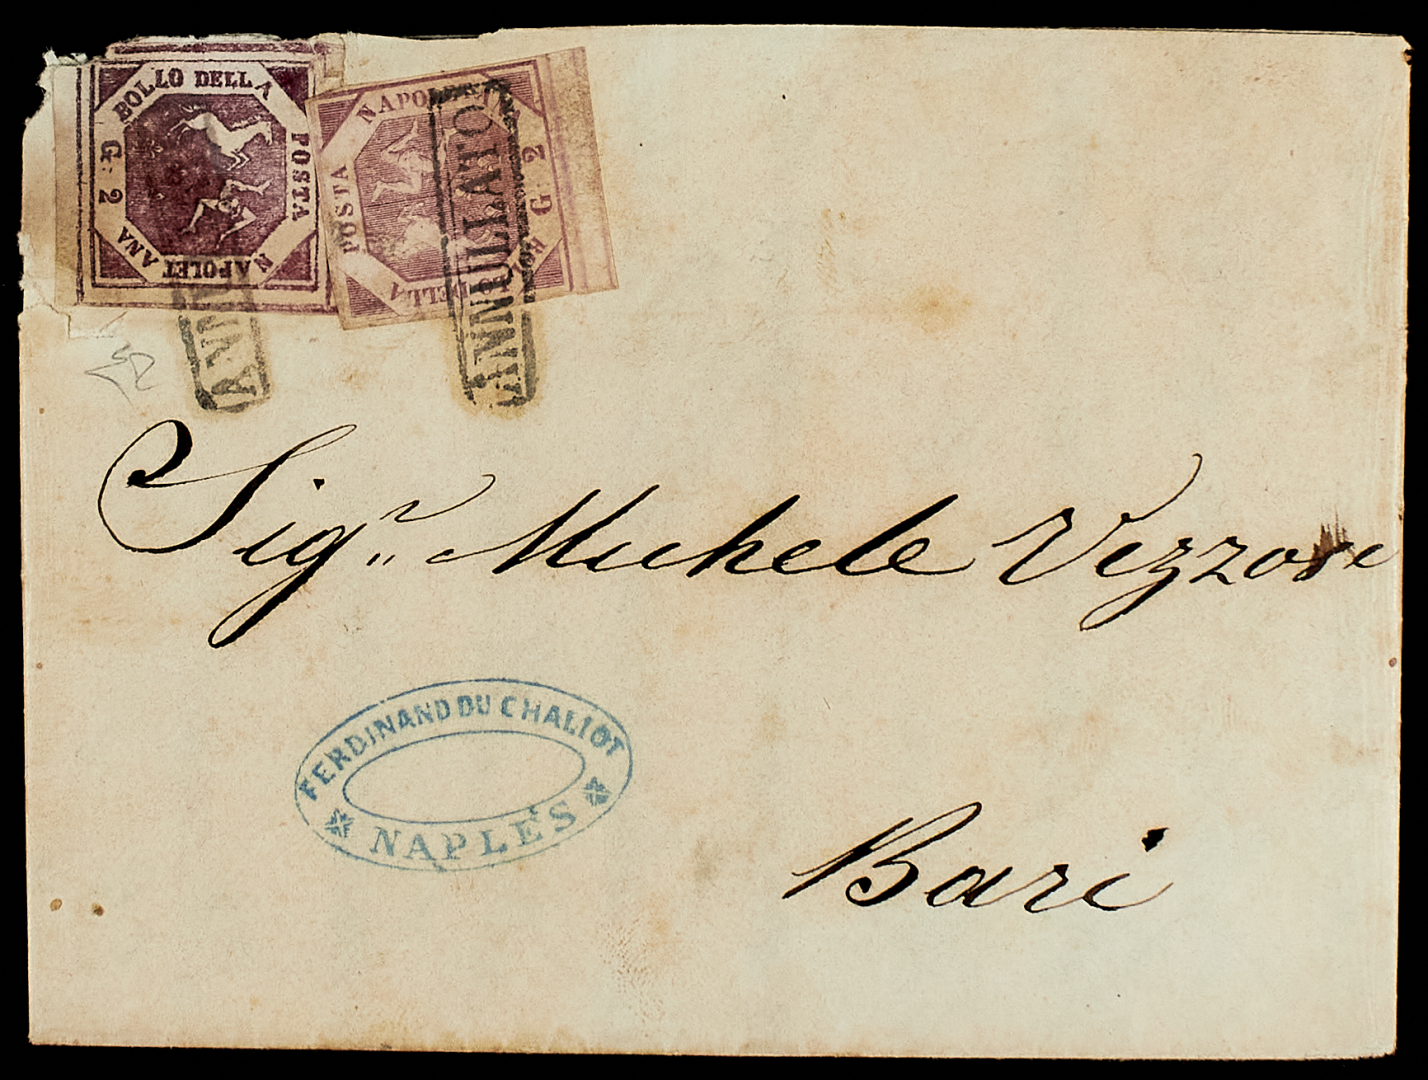 BOLLO DELLA
POSTA
NAPOLETANA
G. 2
BOL
DELLA
POSTA
NAPO
G. 2
ANN
ANNULLATO
Sigr. Michele Vezzosi
FERDINAND DU CHALIOT
NAPLES
Bari